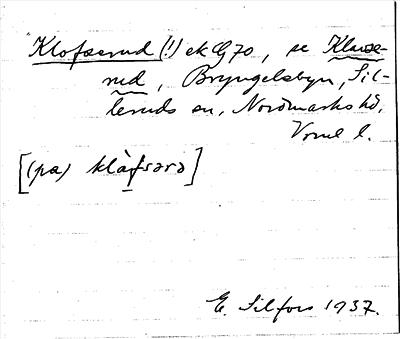 Klofserud (!) ek G 70, se Klavse-
rud, Bryngelsbyn, Sil-
leruds sn, Nordmarks hd,
Vrml l.
[(pa) klåfsərə]
E. Silfors 1937.